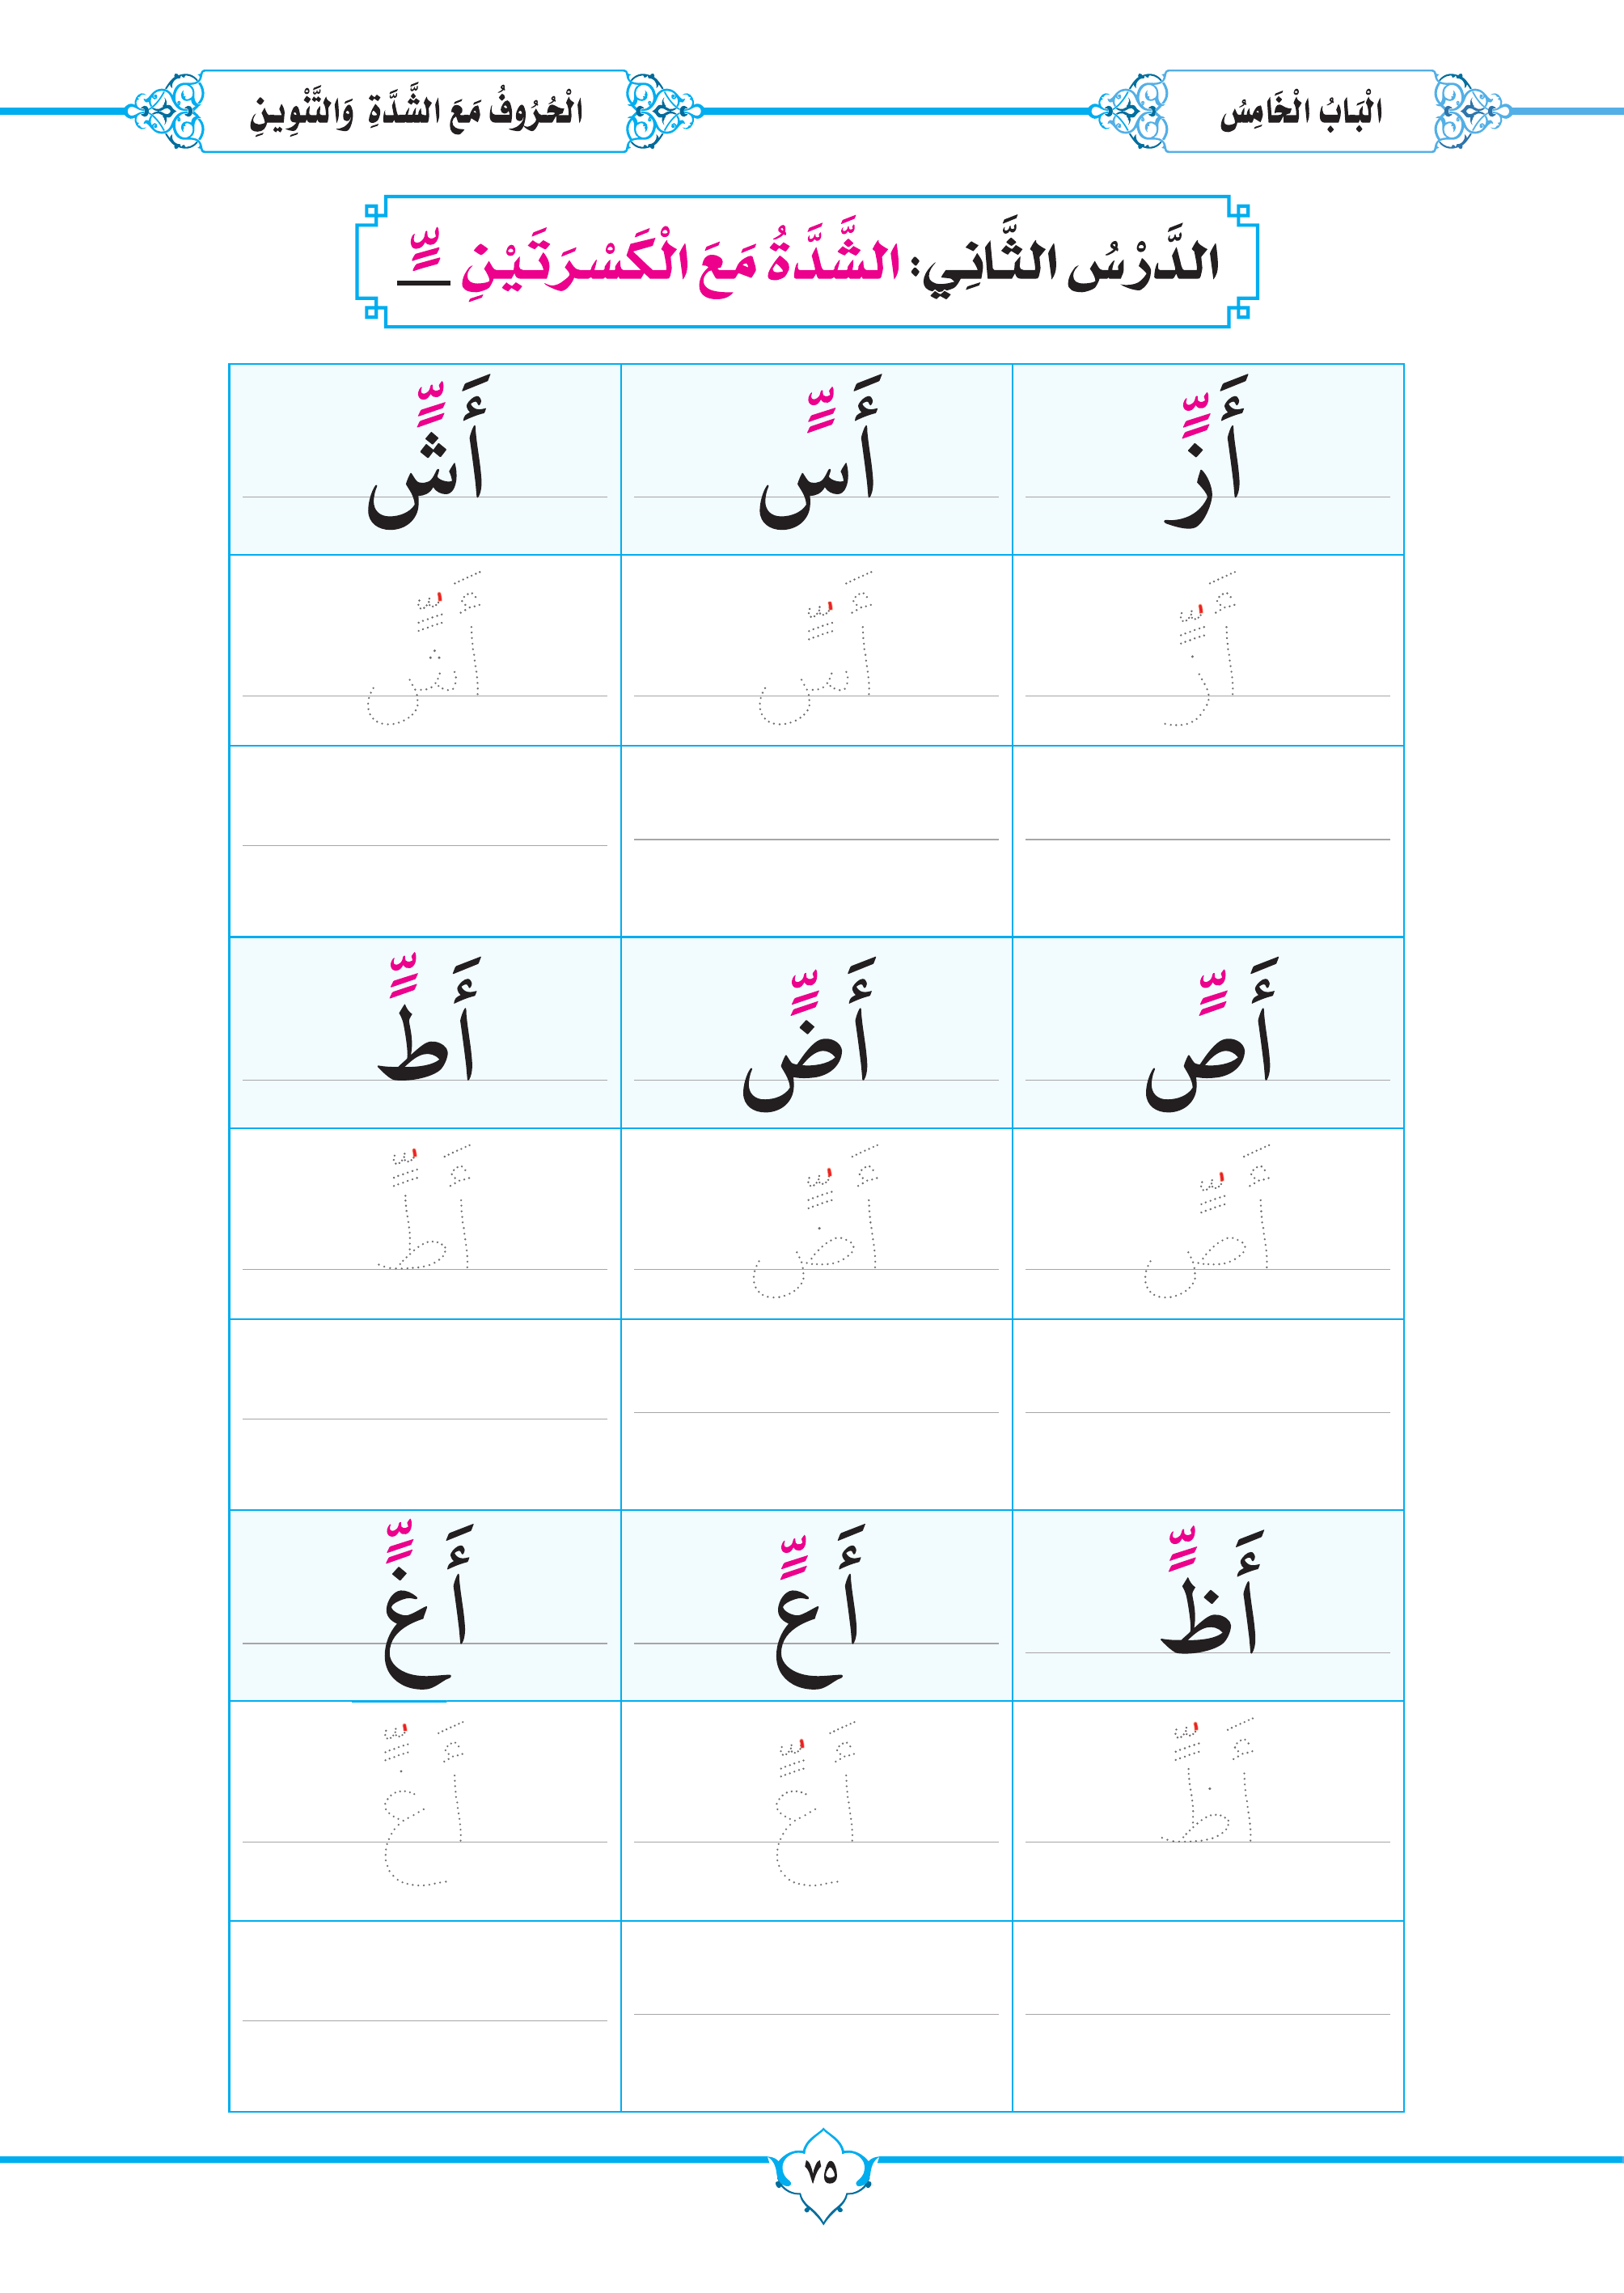 الْبَابُ الْخَامِسُ
الْحُرُوفُ مَعَ الشَّدَّةِ وَالتَّنْوِينِ
الدَّرْسُ الثَّانِي: الشَّدَّةُ مَعَ الْكَسْرَتَيْنِ ــٍّـ
أَزٍّ أَسٍّ أَشٍّ
أَزٍّ أَسٍّ أَشٍّ
أَصٍّ أَضٍّ أَطٍّ
أَصٍّ أَضٍّ أَطٍّ
أَظٍّ أَعٍّ أَغٍّ
أَظٍّ أَعٍّ أَغٍّ
٧٥